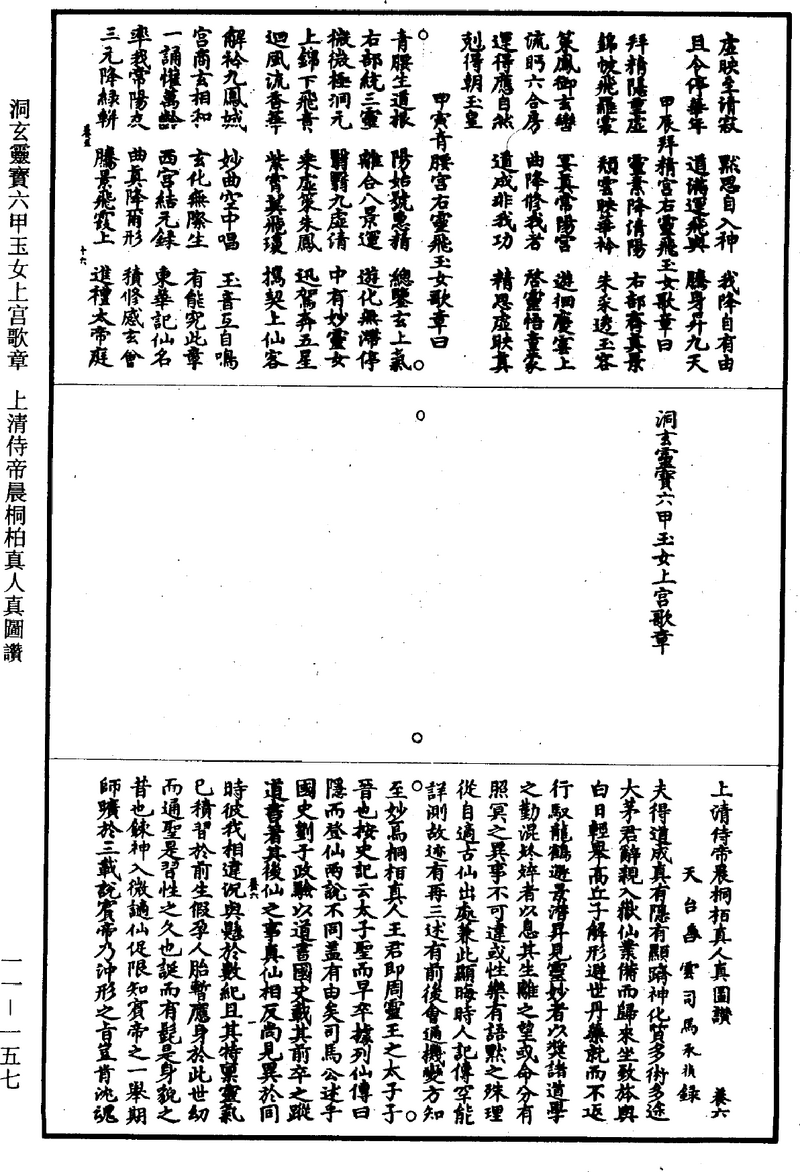 虛映至清寂　默思自入神　我降自有由
且令停華年　道滿運飛輿　騰身昇九天
甲辰拜精宮右靈飛玉女歌章曰
拜精隱重虛　靈素降清陽　右部齊真景
錦帔飛羅裳　頹雲映華衿　朱采逸玉容
策鳳御玄轡　冥真常陽宮　遊徊慶雲上
流眄六合房　曲降修我者　啓靈悟童蒙
運得應自然　道成非我功　精思虛映真
剋得朝玉皇
甲寅青腰宮右靈飛玉女歌章曰
青腰生道根　陽始號惠精　總鑒玄上炁
右部統三靈　離合八景運　遊化無滯停
微微極洞元　翳翳九虛清　中有妙靈女
上錦下飛青　乘虛策朱鳳　迅駕奔五星
迴風流香華　紫霄翼飛瓊　攜契上仙客
解衿九鳳城　妙曲空中唱　玉音互自鳴
宮商玄相和　玄化無際生　有能究此章
一誦懽萬齡　西宮結元錄　東華記仙名
率我常陽炁　曲真降爾形　積修感玄會
三元降綠軿　騰景飛霞上　進禮太帝庭
卷五　十六
洞玄靈寶六甲玉女上宮歌章
上清侍帝晨桐栢真人真圖讚　卷六
天台
雲司馬承
夫得道成真有隱有顯躋神化質多術多途
大茅君辭親入嶽仙業備而歸來坐致旅輿
白日輕舉高丘子解形避世丹藥就而不返
行馭龍鶴遊景濟昇見靈妙者以獎諸道學
之勤混
者以息其生離之望或命分有
照冥之異事不可違或性樂有語默之殊理
從自適古仙出處兼此顯晦時人記傳罕能
詳測故迹有再三述有前後會通機變方知
至妙焉桐栢真人王君即周靈王之太子子
晉也按史記云太子聖而早卒據列仙傳曰
隱而登仙兩說不同蓋有由矣司馬公述乎
國史劉子政驗以道書國史載其前卒之蹤
道書著其後仙之事真仙相反尚見異於同
卷六　一
時彼我相違況與懸於數紀且其特稟靈氣
已積習於前生假孕人胎暫應身於此世幼
而通聖是習性之久也誕而有髭是身貌之
昔也鍊神入微謫仙促限知賓帝之一舉期
師曠於三載說賓帝乃沖形之旨豈肯沈魂
洞玄靈寶六甲玉女上宮歌章　上清侍帝晨桐柏真人真圖讚
一一—一五七